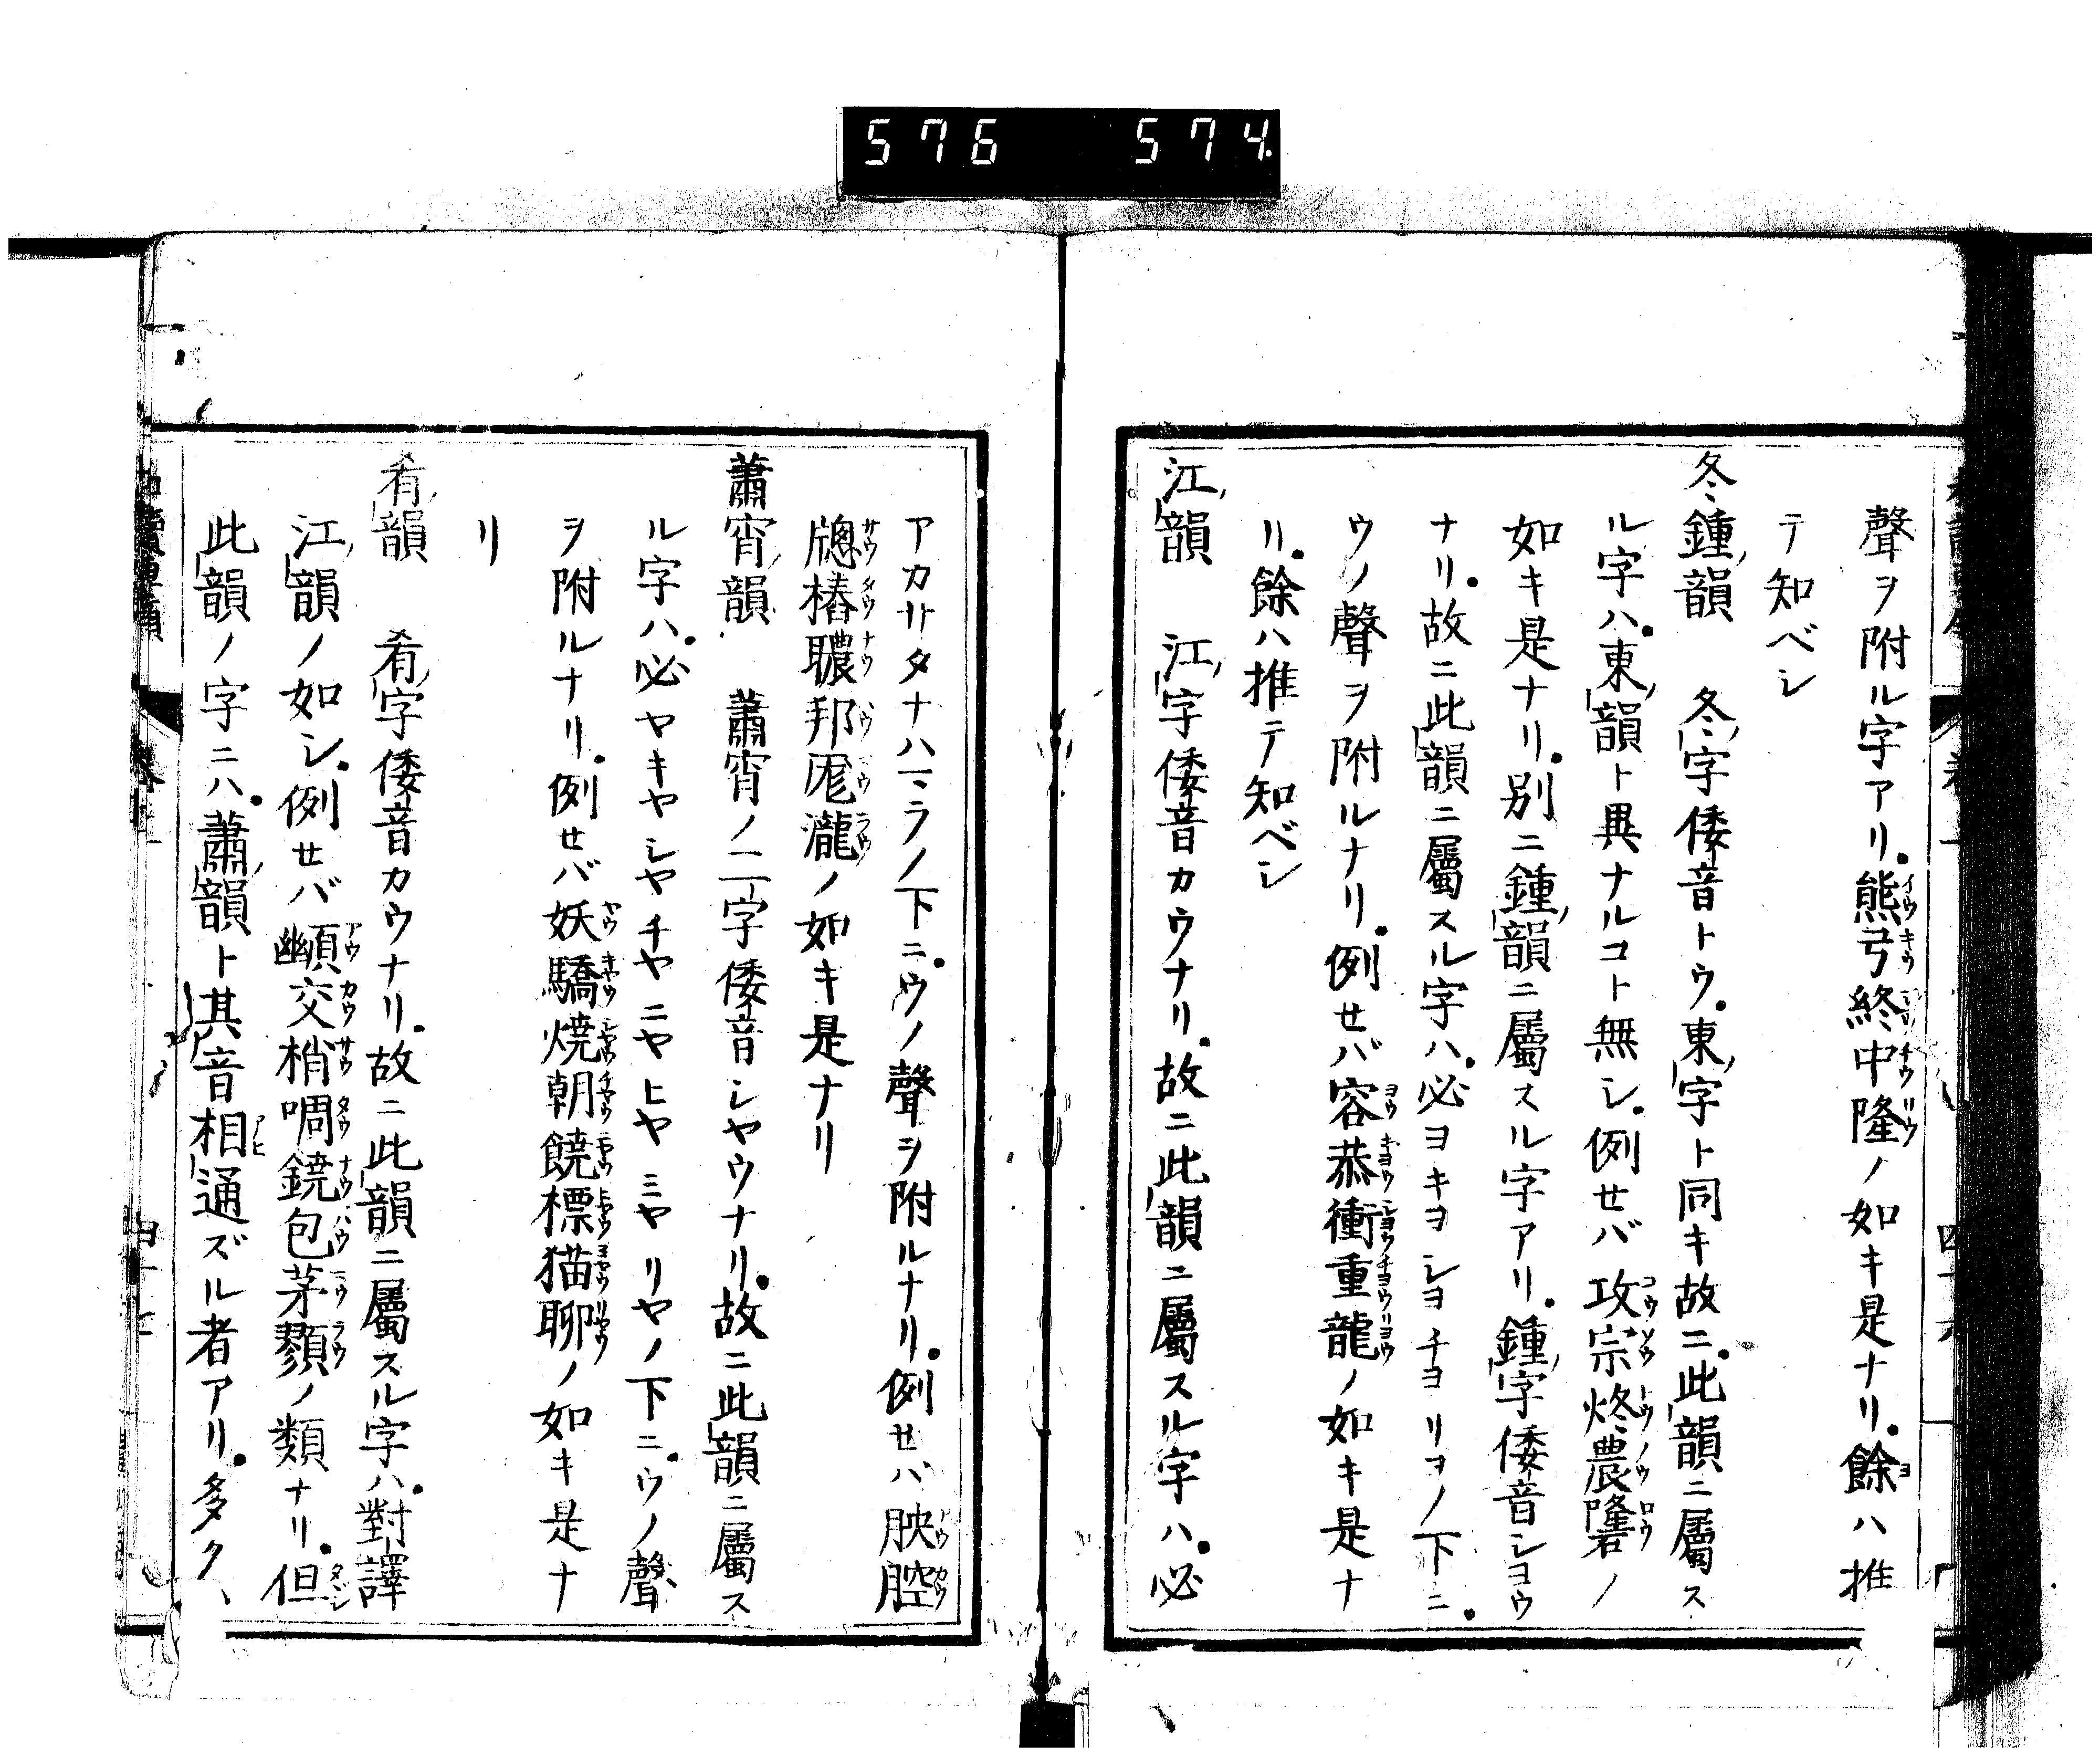 576 574
聲ヲ附ル字アリ。熊弓終中隆ノ如キ是ナリ。餘ハ推
テ知ベシ
冬鍾韻 冬字倭音トウ。東字ト同キ故ニ。此韻ニ屬ス
ル字ハ。東韻ト異ナルコト無シ。例セバ攻宗炵農隆ノ
如キ是ナリ。別ニ鍾韻ニ屬スル字アリ。鍾字倭音シヨウ
ナリ。故ニ此韻ニ屬スル字ハ。必ヨキヨシヨチヨリヨノ下ニ。
ウノ聲ヲ附ルナリ。例セバ容恭衝重龍ノ如キ是ナ
リ。餘ハ推テ知ベシ
江韻 江字倭音カウナリ。故ニ此韻ニ屬スル字ハ。必
アカサタナハマラノ下ニ。ウノ聲ヲ附ルナリ。例セバ胦腔
牕樁聬邦厖瀧ノ如キ是ナリ
蕭宵韻 蕭宵ノ二字倭音シヤウナリ。故ニ此韻ニ屬ス
ル字ハ。必ヤキヤシヤチヤニヤヒヤミヤリヤノ下ニ。ウノ聲
ヲ附ルナリ。例セバ妖驕燒朝饒標猫聊ノ如キ是ナ
リ
肴韻 肴字倭音カウナリ。故ニ此韻ニ屬スル字ハ。對譯
江韻ノ如シ。例セバ顤交梢啁鐃包茅顟ノ類ナリ。但
此韻ノ字ニハ。蕭韻ト其音相通ズル者アリ。多ク、